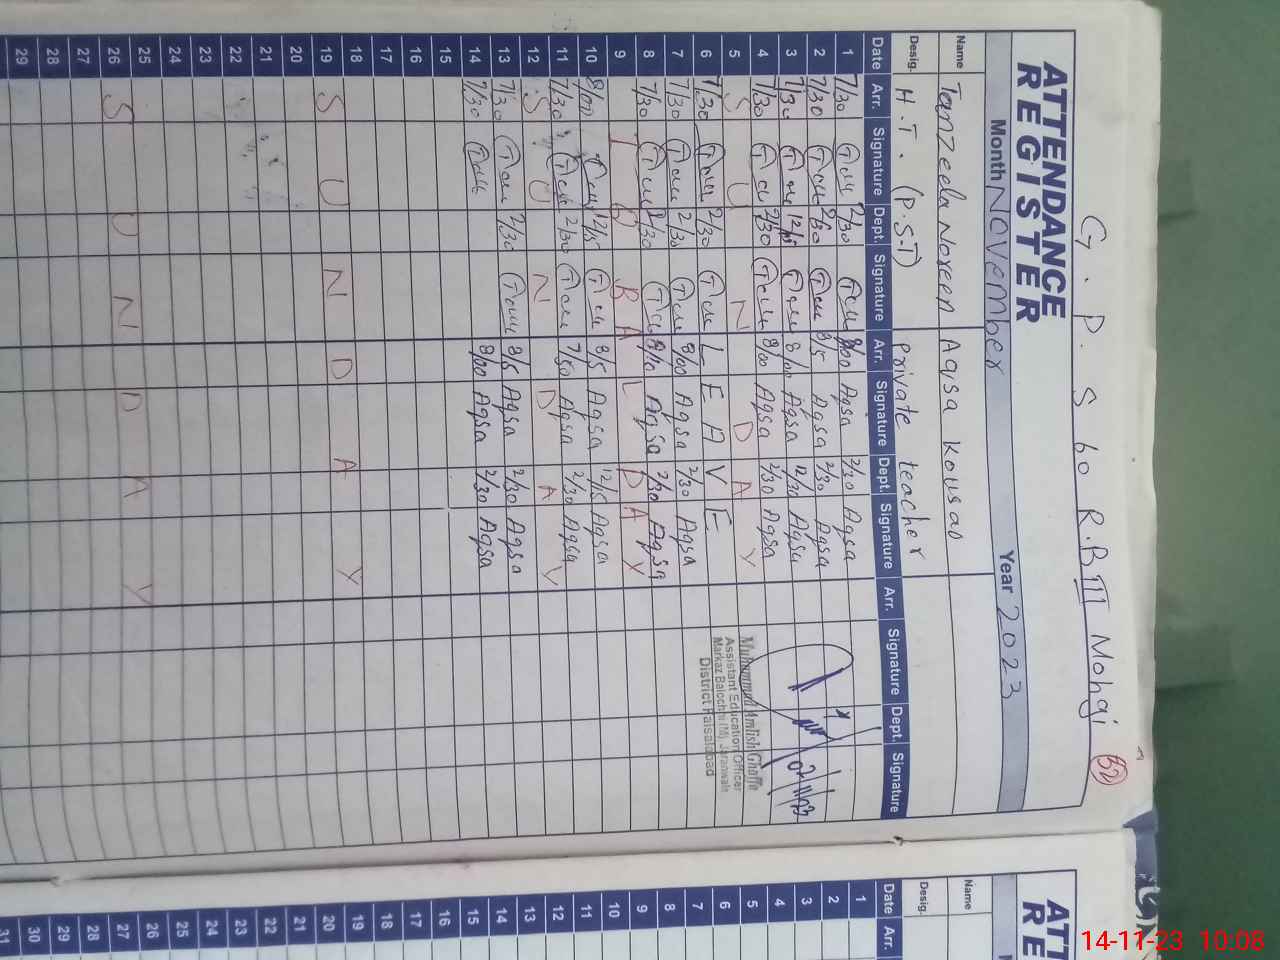 G. P. S 60 R.B III Mohgi
B2
ATTENDANCE
REGISTER
Month November Year 2023
Name Tanzeela Noreen Aqsa Kousar
Desig. H.T. (P.S.T) private teacher
Date Arr. Signature Dept. Signature Arr. Signature Dept. Signature Arr. Signature Dept. Signature
1 7/30 2/30 8/00 Aqsa 2/30 Aqsa
2 7/30 2/30 8/5 Aqsa 2/30 Aqsa
3 7/30 12/15 8/00 Aqsa 12/30 Aqsa
4 7/30 2/30 8/00 Aqsa 2/30 Aqsa
5 S U N D A Y
6 7/30 2/30 L E A V E
7 7/30 2/30 8/00 Aqsa 2/30 Aqsa
8 7/30 2/30 8/10 Aqsa 2/30 Aqsa
9 I Q B A L D A Y
10 8/00 12/15 8/5 Aqsa 12/15 Aqsa
11 7/30 2/30 7/50 Aqsa 2/30 Aqsa
12 S U N D A Y
13 7/30 2/30 8/5 Aqsa 2/30 Aqsa
14 7/30 8/00 Aqsa 2/30 Aqsa
15
16
17
18
19 S U N D A Y
20
21
22
23
24
25
26 S U N D A Y
27
28
29
Muhammad
Assistant Education Officer
Markaz Balochni (M) Jaranwala
District Faisalabad
ATT
RE
Name
Desig.
Date Arr.
1
2
3
4
5
6
7
8
9
10
11
12
13
14
15
16
17
18
19
20
21
22
23
24
25
26
27
28
29
30
31
14-11-23 10:08